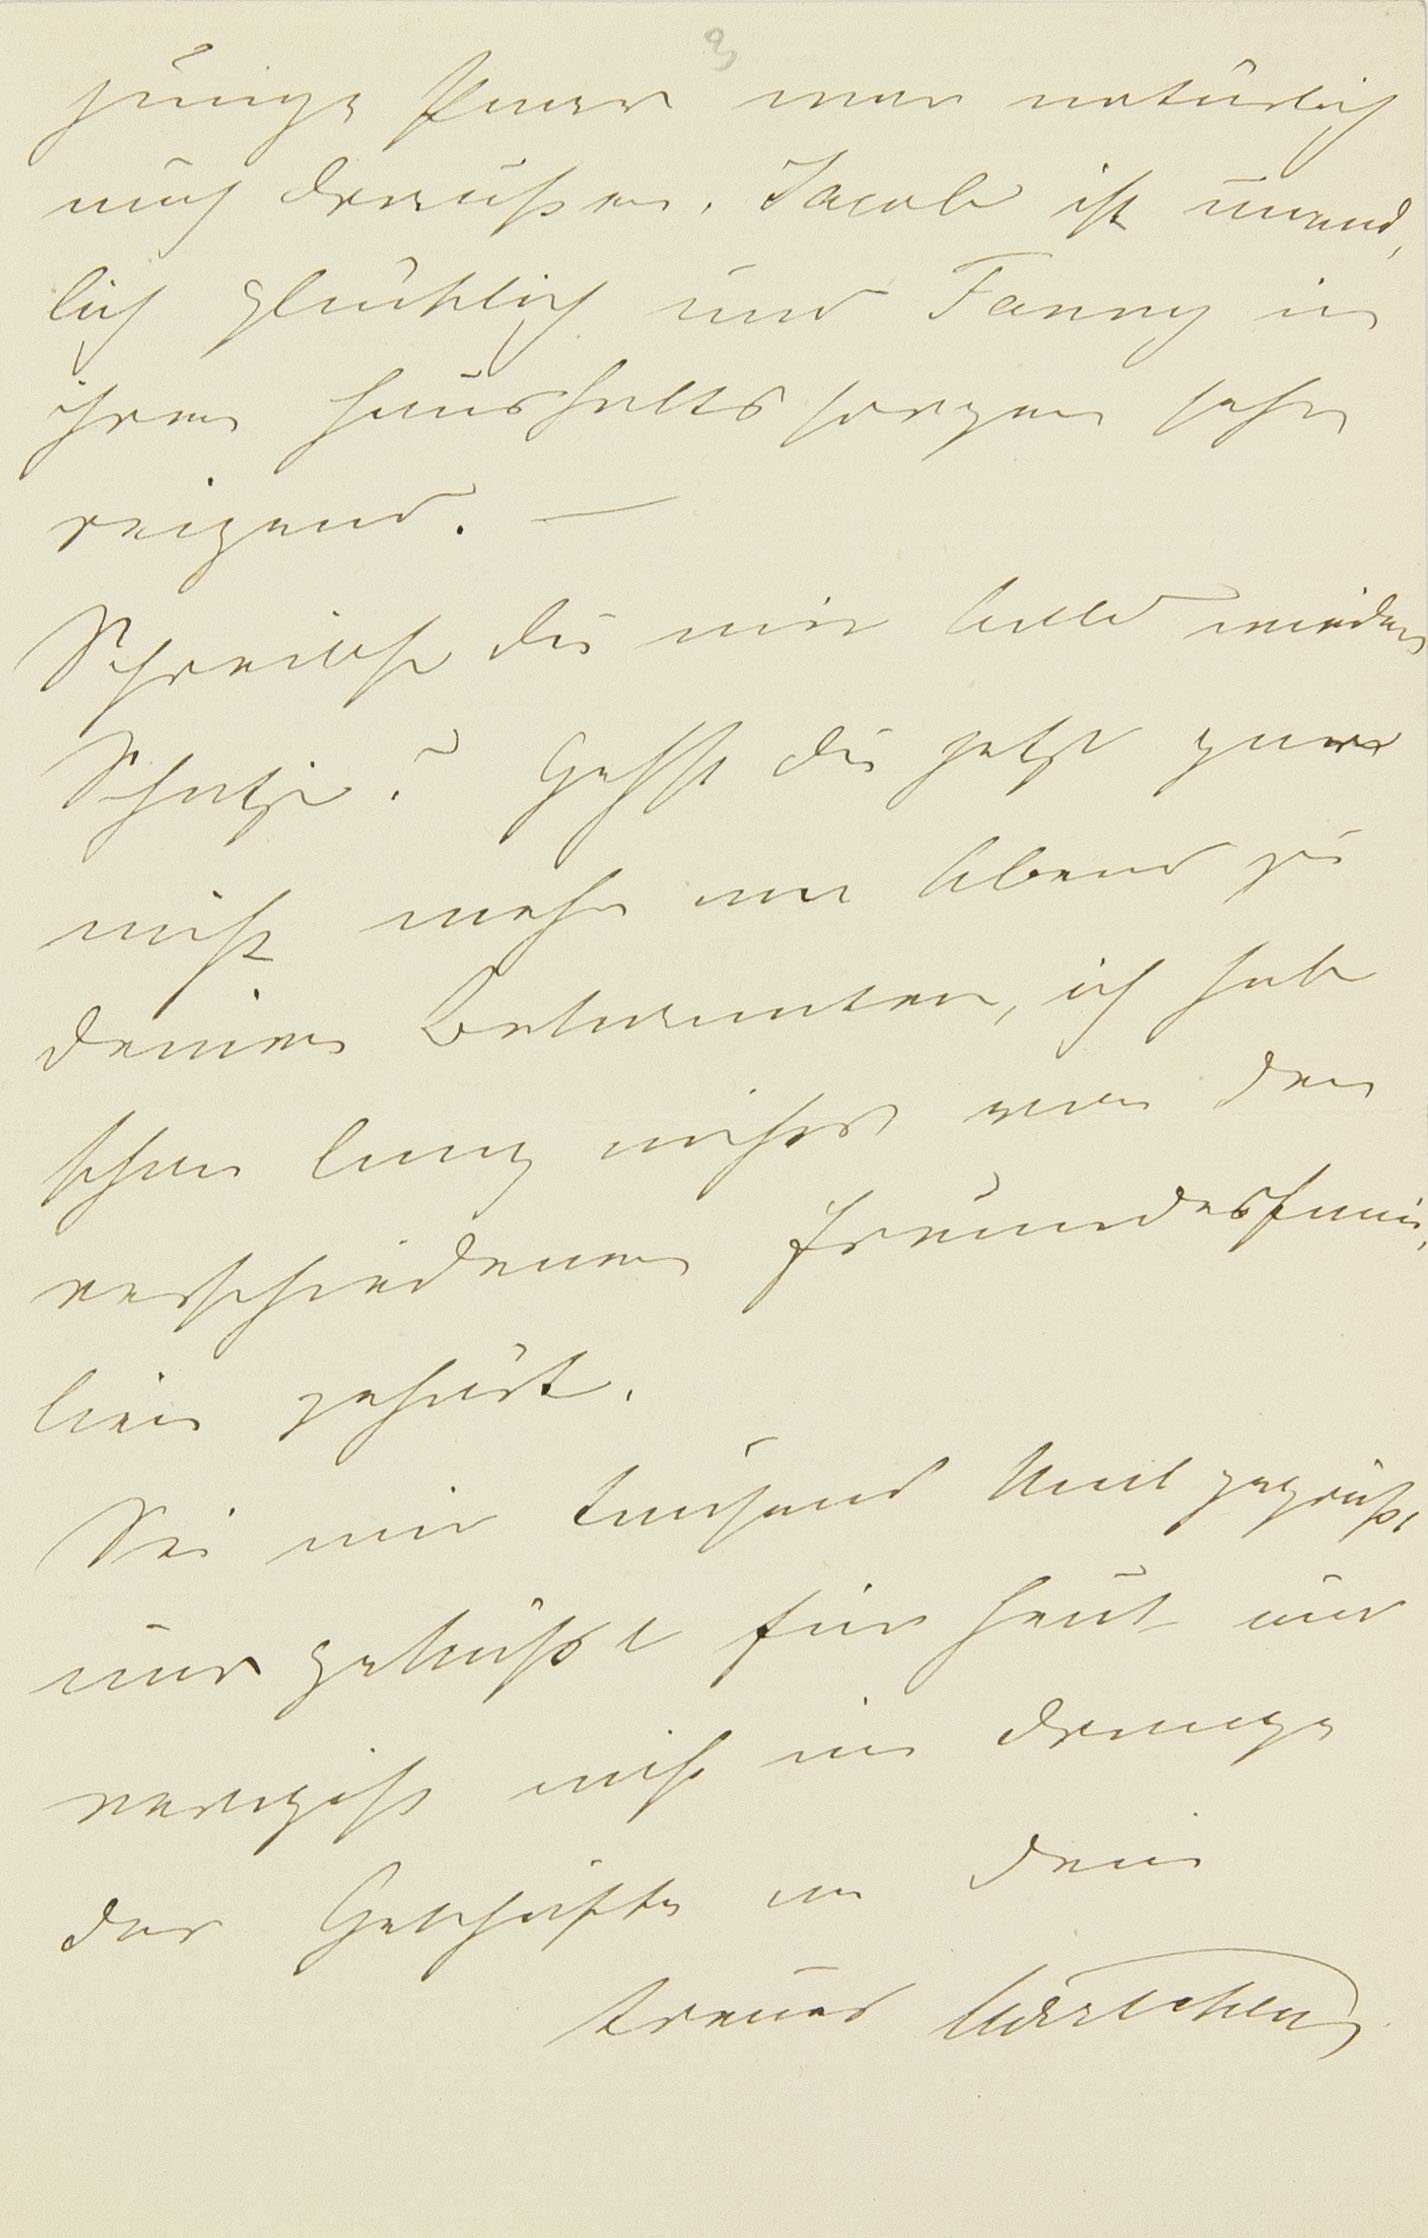 3
junge Paar war natürlich
auch draußen. Jacob ist unend,
lich glücklich und Fanny in
ihren Haushaltssorgen sehr
reizend. —
Schreibst du mir bald wieder
Schatzi? Gehst du jetzt gar
nicht mehr am Abend zu
deinen Bekannten, ich hab
schon lang nichts von den
verschiedenen Freundesfami,
lien gehört.
Sei mir tausend Mal gegrüßt
und geküßt für heut und
vergiß nicht im Drange
der Geschäfte an dein
treues